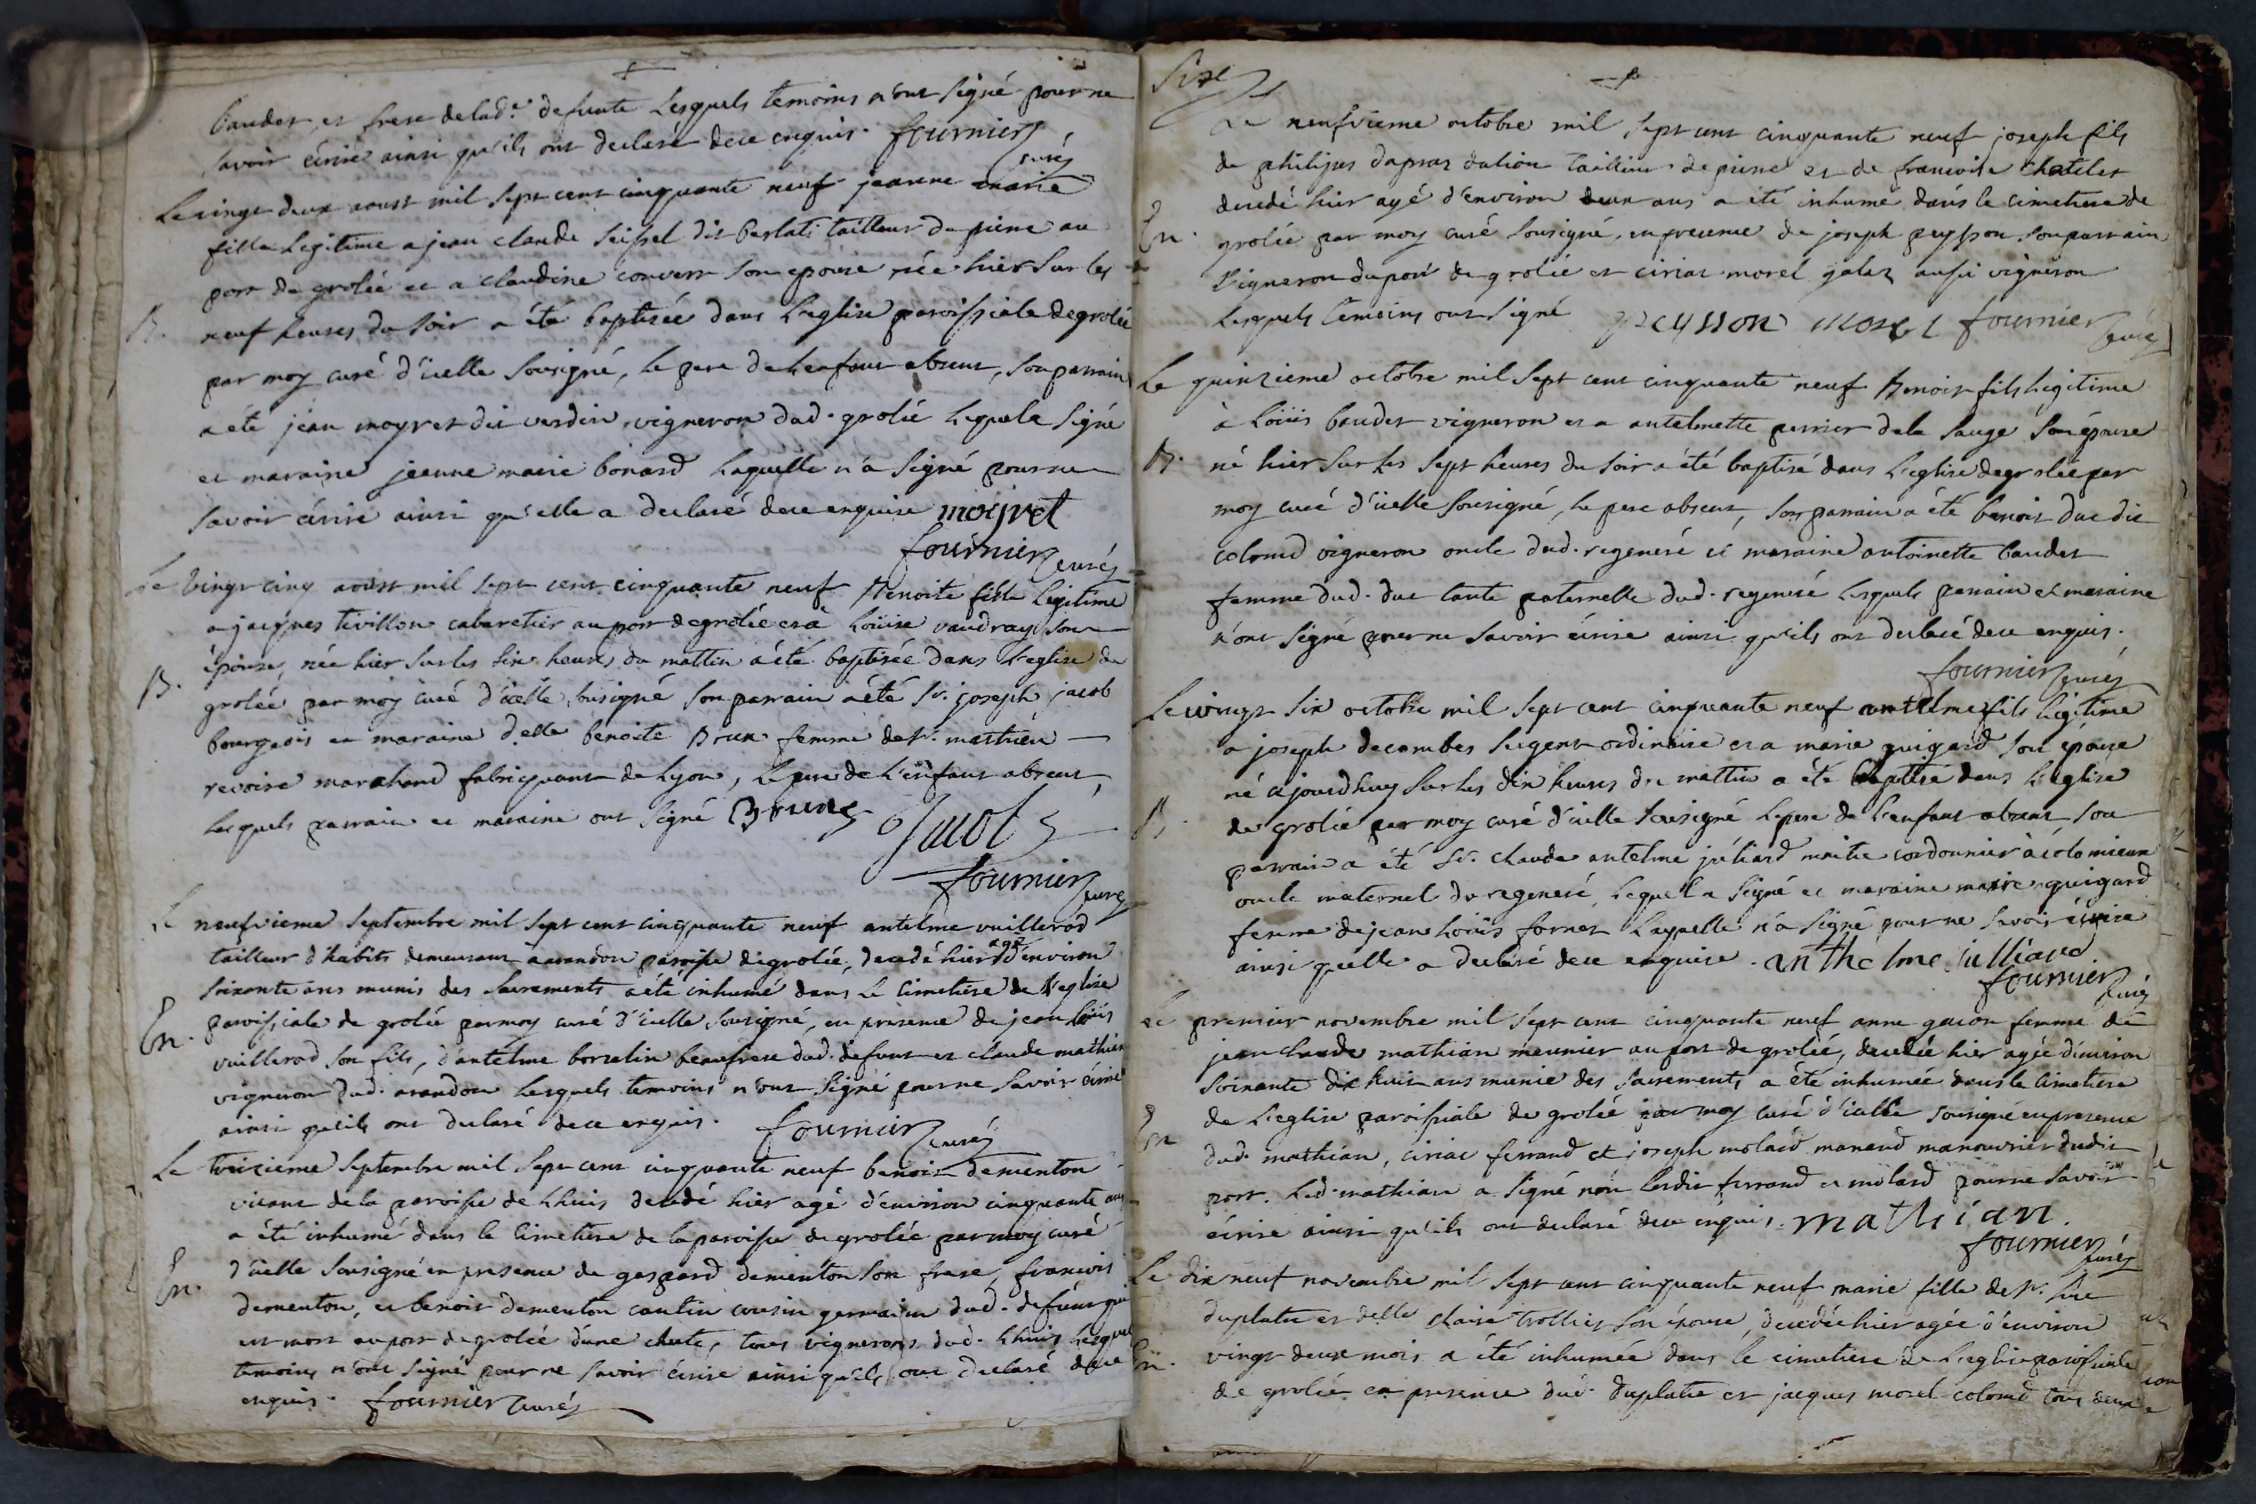 baudet, et frere de lad.e defunte Lesquels temoins n'ont signé pour ne
savoir écrire ainsi qu'ils ont declaré de ce enquis. fournier curé
Le vingt deux aoust mil sept cent cinquante neuf jeanne marie
fille Legitime a jean claude seissel dit berlat tailleur de pierre au
port de grolée et a claudine convers son epouse née hier sur les
B. neuf heures du soir a été baptisée dans L'eglise paroissiale de grolée
par moy curé d'icelle sousigné, le pere de L'enfant absent, son parrain
a été jean moyret dit verdin vigneron dud. grolée lequel a signé
et maraine jeanne marie bonard laquelle n'a signé pour ne
savoir écrire ainsi qu'elle a declaré de ce enquise moyret
fournier curé
Le vingt cinq aoust mil sept cent cinquante neuf Benoite fille Legitime
a jacques tivillon cabaretier au port de grolée et à Loüise vaudray son
épouse, née hier sur les six heures du mattin a été baptisée dans L'eglise de
B. grolée par moy curé d'icelle sousigné son parrain a été Sr. joseph jacob
bourgeois et maraine delle benoite Brun femme de Sr. mathieu
revoire marchand fabriquant de Lyon, le pere de L'enfant absent,
lesquels parrain et maraine ont signé Brune
Jacob
fournier curé
Le neufvieme septembre mil sept cent cinquante neuf antelme vuillerod
tailleur d'habits demeurant a arandon paroisse de grolée, decedé hier agé d'environ
soixante ans munis des sacrements a été inhumé dans le cimetiere de l'eglise
En. paroissiale de grolée par moy curé d'icelle sousigné, en presence de jean loüis
vuillerod son fils, d'antelme borselin beaufrere dud. defunt et claude mathieu
vigneron dud. arandon lesquels temoins n'ont signé pour ne savoir écrire
ainsi qu'ils ont declaré de ce enquis. fournier curé
Le treizieme septembre mil sept cent cinquante neuf benoit dementon
vivant de la paroisse de Lhuis decedé hier agé d'environ cinquante ans
a été inhumé dans le cimetiere de la paroisse de grolée par moy curé
En. d'icelle sousigné en presence de gaspard dementon son frere, francois
dementon, et benoit dementon cantin cousin germain dud. defunt qui
est mort au port de grolée d'une chute, tous vignerons dud. Lhuis, lesquels
temoins n'ont signé pour ne savoir écrire ainsi qu'ils ont declaré de ce
enquis. fournier curé
Six
Le neufvieme octobre mil sept cent cinquante neuf joseph fils
de philipes dapras dation tailleur de pierre et de francoise chatelet
decedé hier agé d'environ deux ans a été inhumé dans le cimetiere de
En. grolée par moy curé sousigné, en presence de joseph peysson son parrain
vigneron du port de grolée et ciriac morel jalaz aussi vigneron
lesquels temoins ont signé peysson morel fournier curé
Le quinzieme octobre mil sept cent cinquante neuf Benoit fils legitime
à Loüis baudet vigneron et a antelmette perrier de la sauge son épouse
B. né hier sur les sept heures du soir a été baptisé dans L'eglise de grolée par
moy curé d'icelle sousigné, le pere absent, son parrain a été benoit duc dit
colomd vigneron oncle dud. regeneré et maraine antoinette baudet
femme dud. duc tante paternelle dud. regeneré lesquels parrain et maraine
n'ont signé pour ne savoir écrire ainsi qu'ils ont declaré de ce enquis.
fournier curé
Le vingt six octobre mil sept cent cinquante neuf antelme fils legitime
a joseph decombes sergent ordinaire et a marie guigard son épouse
né ajourdhuy sur les dix heures du mattin a été baptisé dans L'eglise
B. de grolée par moy curé d'icelle sousigné le pere de L'enfant absent, son
parrain a été Sr. claude antelme juliard maitre cordonnier à colomieux
oncle maternel du regeneré, lequel a signé et maraine marie guigard
femme de jean Loüis fornet laquelle n'a signé pour ne savoir écrire
ainsi qu'elle a declaré de ce enquise. anthelme julliard
fournier curé
Le premier novembre mil sept cent cinquante neuf anne gacon femme de
jean claude mathian meunier au port de grolée, decedée hier agée d'environ
soixante dix huit ans munie des sacrements a été inhumée dans le cimetiere
En de L'eglise paroissiale de grolée par moy curé d'icelle sousigné en presence
dud. mathian, ciriac ferrand et joseph molard manand manouvrier dudit
port. Led. mathian a signé non lesdits ferrand et molard pour ne savoir
écrire ainsi qu'ils ont declaré de ce enquis. mathian.
fournier curé
Le dix neuf novembre mil sept cent cinquante neuf marie fille de Sr. luc
duplatre et delle claire trollier son épouse, decedée hier agée d'environ
En. vingt deux mois a été inhumée dans le cimetiere de L'eglise paroissiale
de grolée en presence dud. duplatre et jacques morel colomd tous deux